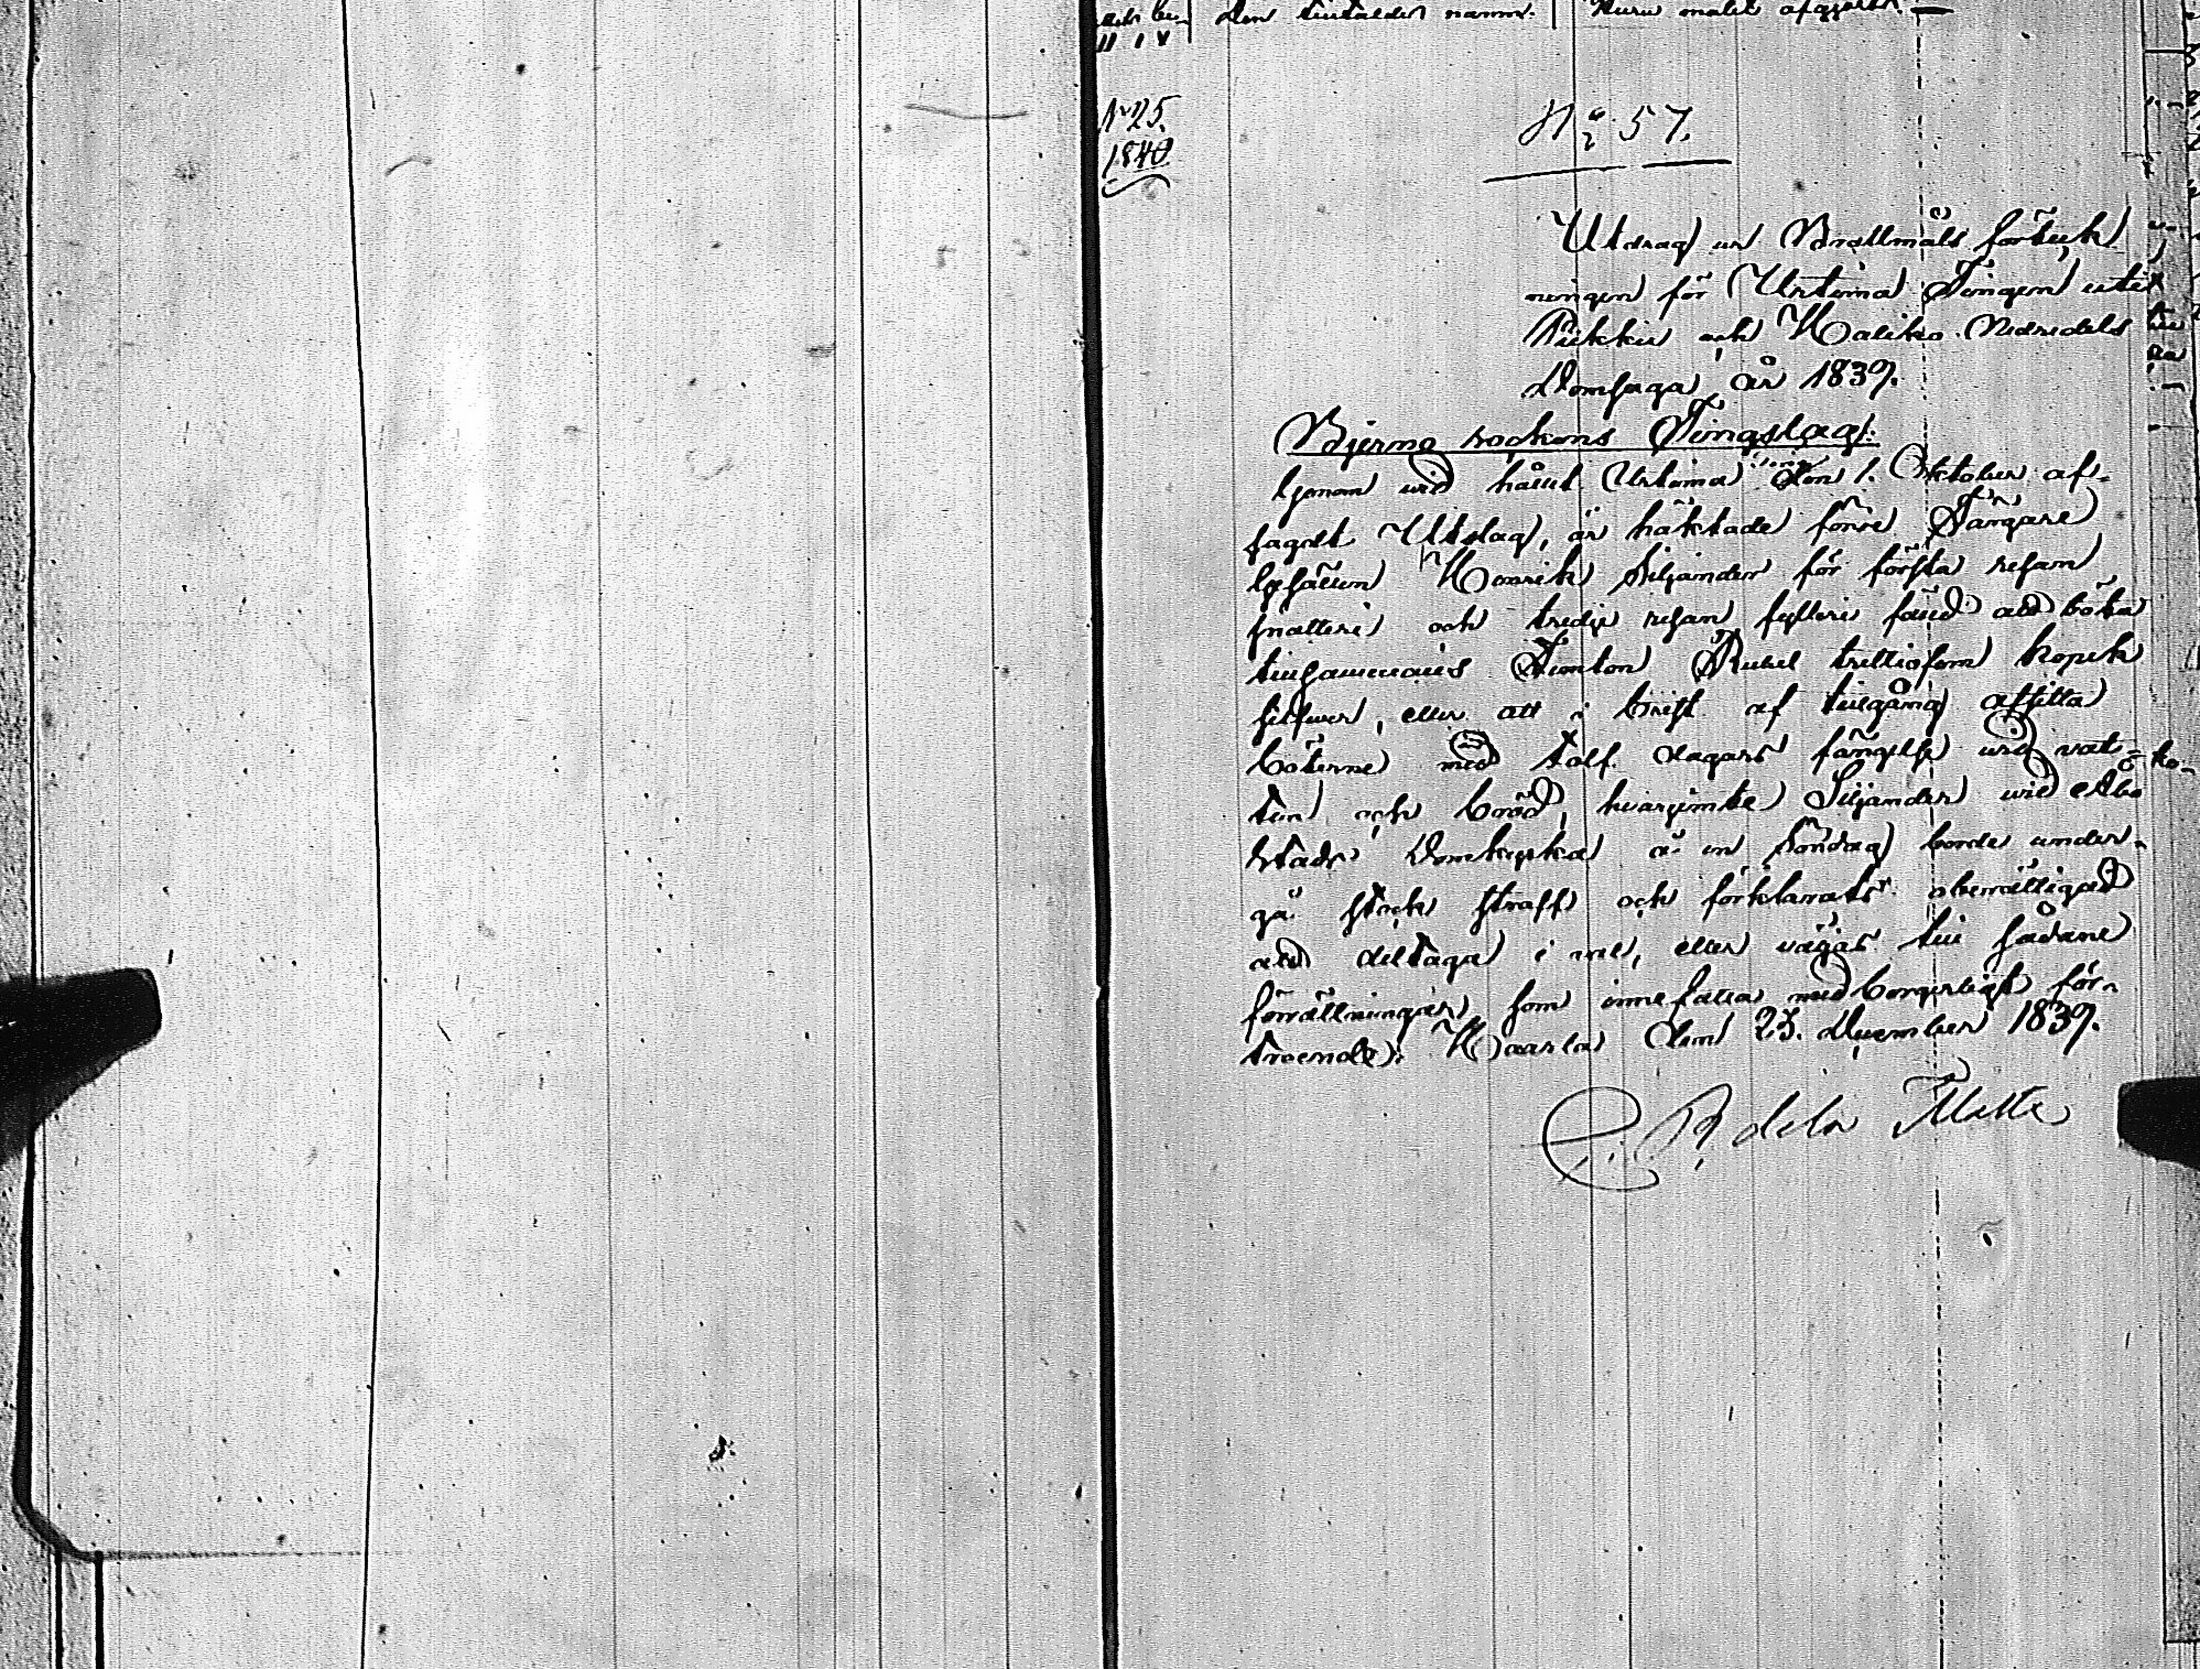 Den tilltalades namn. Huru målet afgjorts.
N° 25.
1840
N° 57.
Utdrag ur Brottmåls förteck
ningen för Urtima Tingen uti
Piikkis och Haliko Nedredels
Domsaga år 1839.
Bjerno sockens Tingslag.
Genom vid hållit Urtima Ting den 1. Oktober af-
sagdt Utslag, är häktade förre Sångare
Gesällen Henrik Siljander för första resan
snatteri och tredje resan fylleri fälld att böta
tillsammans Femton Rubel trettiofem kopek
silfver, eller att i brist af tillgång afsitta
böterne med tolf dagars fängelse vid vat-
ten och bröd, hvarjemte Siljander vid Åbo
Stads Domkyrka å en Söndag borde under-
gå stock straff och förklarats oberättigad
att deltaga i val, eller väljas till sådane
förrättningar, som innefatta medborgerligt för-
troende. Haarla den 23. December 1839.